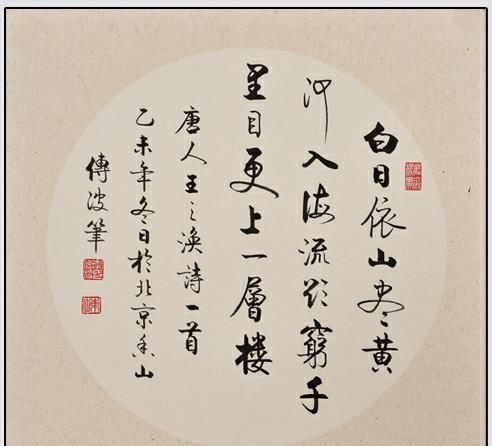 白日依山尽黄
河入海流欲窮千
里目更上一層楼
唐人王之渙詩一首
乙未年冬日於北京香山
傅波筆